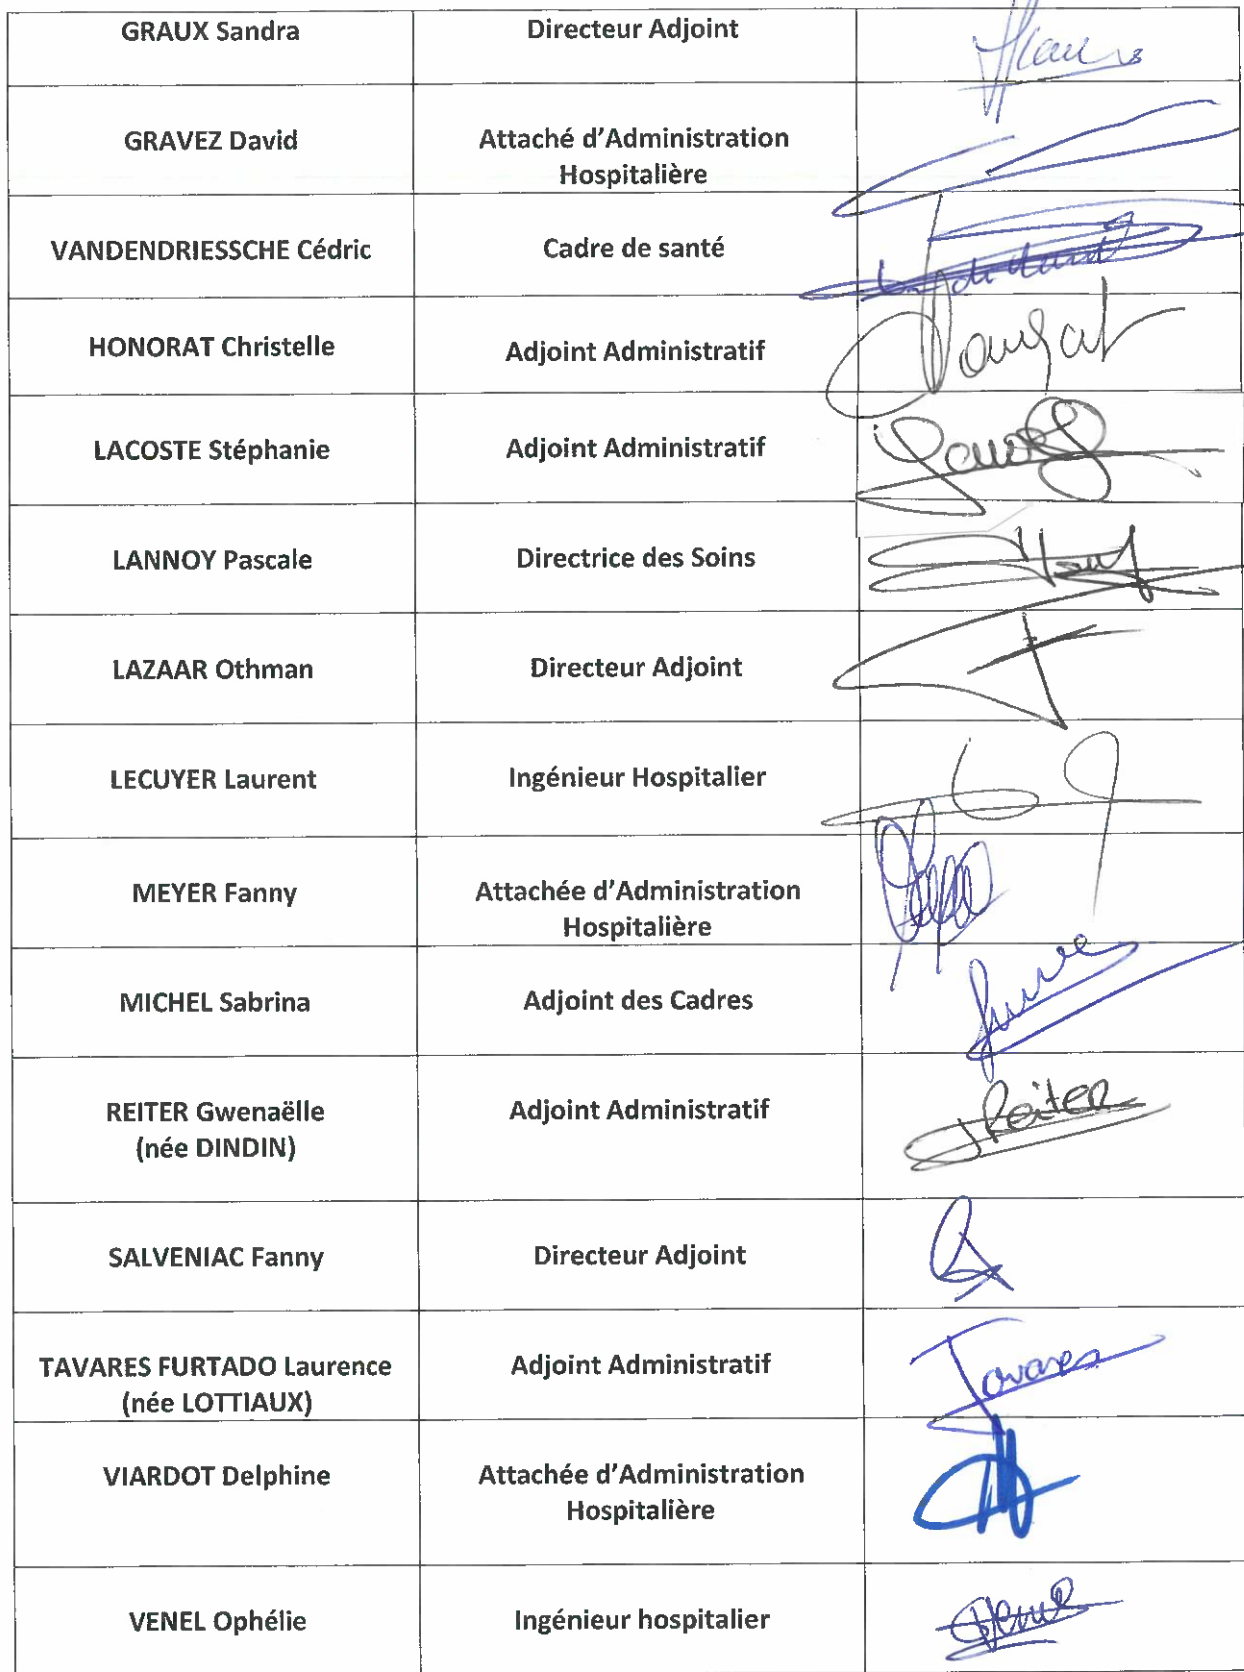 GRAUX Sandra
Directeur Adjoint
GRAVEZ David
Attaché d'Administration
Hospitalière
VANDENDRIESSCHE Cédric
Cadre de santé
HONORAT Christelle
Adjoint Administratif
LACOSTE Stéphanie
Adjoint Administratif
LANNOY Pascale
Directrice des Soins
LAZAAR Othman
Directeur Adjoint
LECUYER Laurent
Ingénieur Hospitalier
MEYER Fanny
Attachée d'Administration
Hospitalière
MICHEL Sabrina
Adjoint des Cadres
REITER Gwenaëlle
(née DINDIN)
Adjoint Administratif
Reiter
SALVENIAC Fanny
Directeur Adjoint
TAVARES FURTADO Laurence
(née LOTTIAUX)
Adjoint Administratif
Tavares
VIARDOT Delphine
Attachée d'Administration
Hospitalière
VENEL Ophélie
Ingénieur hospitalier